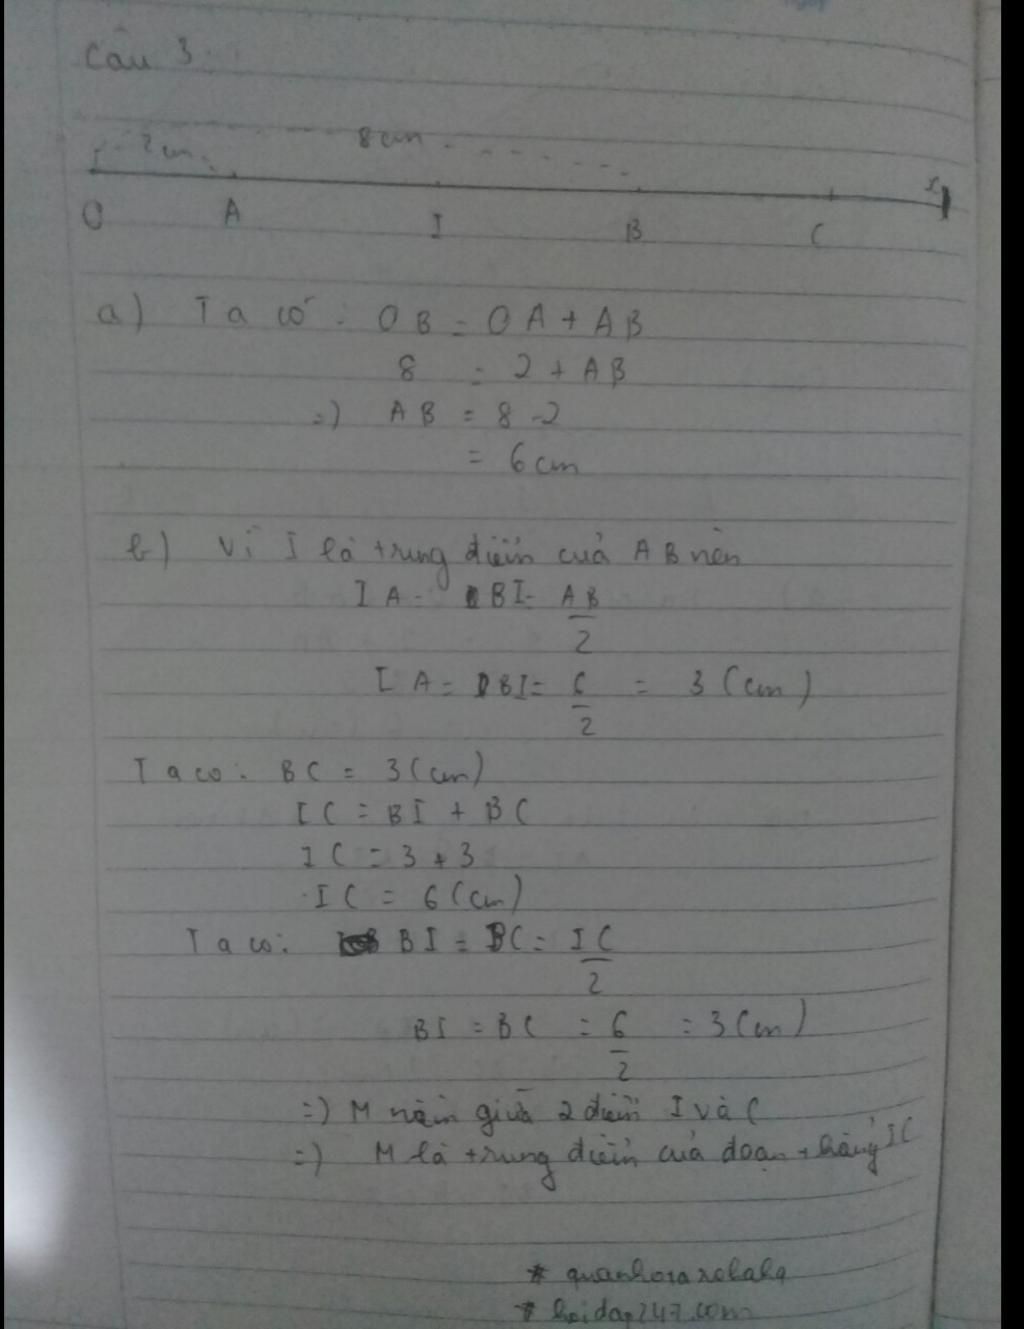 Câu 3
2cm 8cm x
O A I B C
a) Ta có : OB = OA + AB
8 = 2 + AB
=) AB = 8 - 2
= 6cm
b) Vì I là trung điểm cuả AB nên
IA = BI = AB/2
IA = BI = 6/2 = 3 (cm)
Ta co : BC = 3 (cm)
IC = BI + BC
IC = 3 + 3
IC = 6 (cm)
Ta co : BI = BC = IC/2
BI = BC = 6/2 = 3 (cm)
=) M nằm giữa 2 điểm I và C
=) M là trung điểm cuả đoạn thẳng IC
* quanhoaxolalq
* hoidap247.com